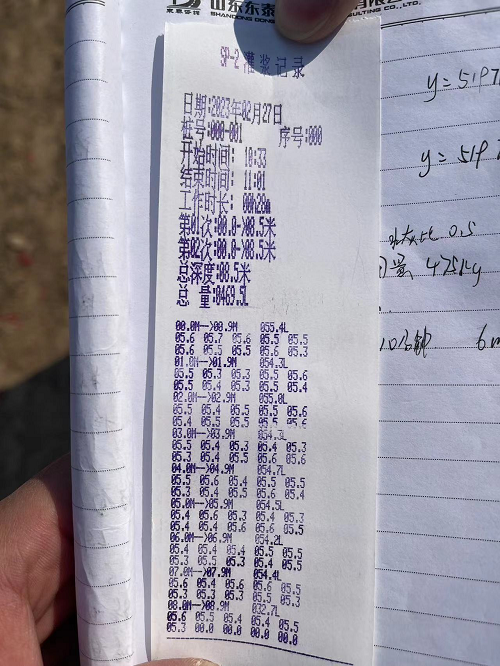 山东东泰
SHANDONG DONG
SULTING CO.,LTD.
SP-2 灌浆记录
日期:2023年02月27日
桩号:000-001 序号:000
开始时间: 10:33
结束时间: 11:01
工作时长: 00h28m
第01次:00.0->08.5米
第02次:00.0->08.5米
总深度:08.5米
总 量:0469.5L
00.0M-->00.9M 055.4L
05.6 05.7 05.6 05.5 05.5
05.6 05.5 05.5 05.6 05.3
01.0M-->01.9M 054.3L
05.5 05.3 05.3 05.5 05.6
05.5 05.4 05.3 05.5 05.4
02.0M-->02.9M 055.0L
05.5 05.4 05.5 05.5 05.6
05.4 05.5 05.5 05.5 05.6
03.0M-->03.9M 054.3L
05.5 05.4 05.3 05.4 05.3
05.3 05.4 05.5 05.6 05.6
04.0M-->04.9M 054.7L
05.5 05.6 05.4 05.5 05.5
05.3 05.4 05.5 05.6 05.4
05.0M-->05.9M 054.5L
05.4 05.6 05.3 05.4 05.3
05.4 05.4 05.6 05.6 05.5
06.0M-->06.9M 054.2L
05.4 05.4 05.4 05.5 05.5
05.3 05.5 05.3 05.4 05.5
07.0M-->07.9M 054.4L
05.6 05.4 05.6 05.6 05.5
05.3 05.3 05.3 05.5 05.3
08.0M-->08.9M 032.7L
05.6 05.5 05.4 05.4 05.5
05.3 00.0 00.0 00.0 00.0
y=5197
y=519
水灰比 0.5
量 475kg
10分钟 6m